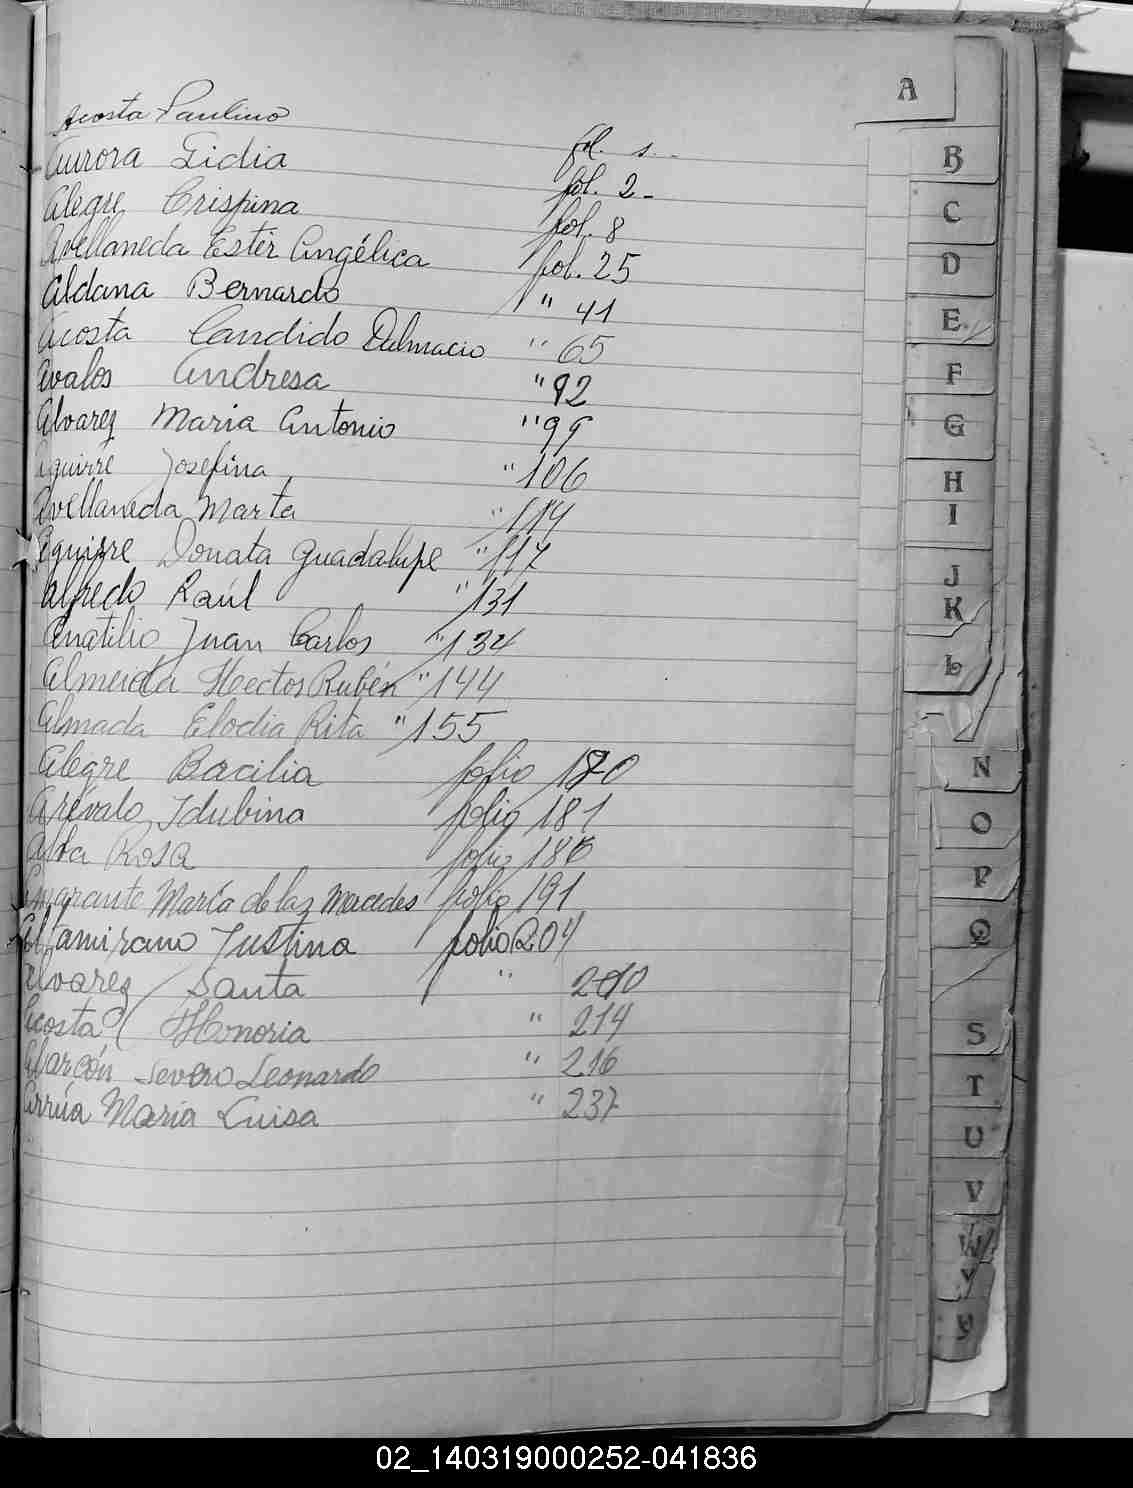 A
Acosta Paulino fol. 1.-
Aurora Lidia fol. 2-
Alegre Crispina fol. 8
Avellaneda Ester Angélica fol. 25
Aldana Bernardo " 41
Acosta Candido Dalmacio " 65
Avalos Andresa " 92
Alvarez Maria Antonio " 99
Aguirre Josefina " 106
Avellaneda Marta " 114
Aguirre Donata Guadalupe " 117
Alfredo Raúl " 131
Anatilio Juan Carlos " 134
Almeida Hector Rubén " 144
Almada Elodia Rita " 155
Alegre Bacilia folio 170
Arévalo Idubina folio 181
Alva Rosa folio 186
Amarante María de laz Mercedes folio 191
Altamirano Justina folio 204
Alvarez Santa " 210
Acosta Honoria " 214
Alarcón Severo Leonardo " 216
Arrúa Maria Luisa " 237
B
C
D
E
F
G
H
I
J
K
L
N
O
P
Q
S
T
U
V
W
Y
02_140319000252-041836